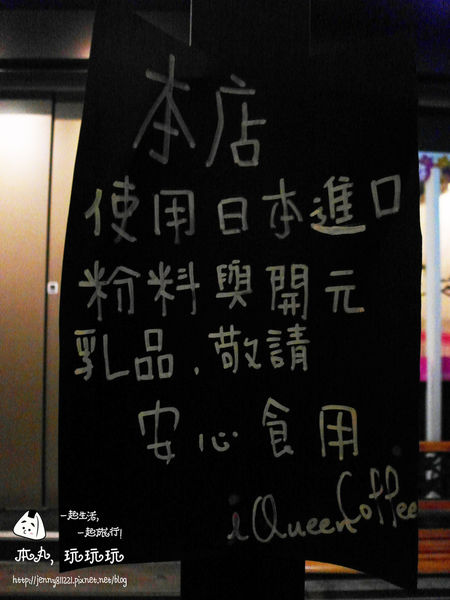 本店
使用日本進口
粉料與開元
乳品,敬請
安心食用
iQueen Coffee
一起生活,
一起旅行!
本丸,玩玩玩
http://jenny811221.pixnet.net/blog